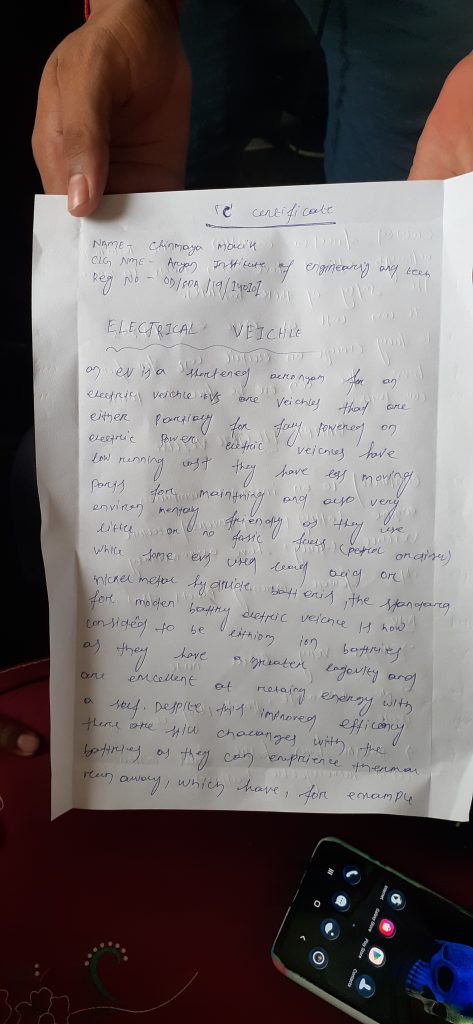 "C" certificate
NAME - Chinmaya Malik
Clg NME - Aryan Institute of engineering and tech
Reg No - OD/SDA/19/
ELECTRICAL VEICHLE
an ev is a shortened acronym for an
electric veichle evs are veichles that are
either partialy for fuly powered on
electric power. eletric veicnes have
low running cost they have less moving
parts for maintning and also very
environ mentaly friendly as they use
little or no fossic fuels (petrol or disel)
while some evs used lead acid or
nickel metal hydride batteris, the standard
for moden battry eletric veicne is now
consided to be lithion ion batteries
as they have a greater and
are encellent at retaing energy with
a self. Despite this improved efficency
there are still chacanges with the
battries as they can enprience thermal
run away, which have, for enample
Internet
Galaxy Store
Play Store
Contacts